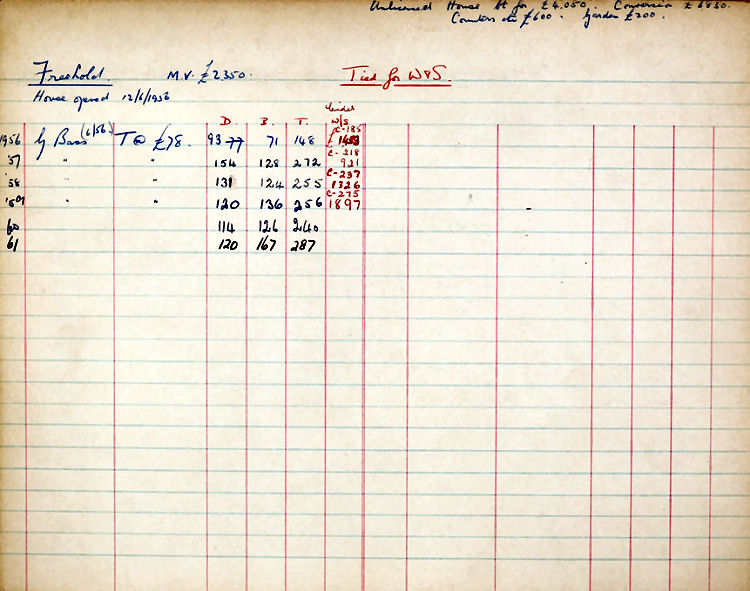 Unlicensed House bt for £4,050. Conversion £6830.
Counters etc £600. Garden £200.
Freehold. M.V. £2350. Tied for W&S.
House opened 12/6/1956
D. B. T. W/S
1956 G. Bass (6/56) T @ £78. 93 77 71 148 C-185 £1453
'57 " " 154 128 272 C-218 921
'58 " " 131 124 255 C-237 1326
'59 " " 120 136 256 C-275 1897
60 114 126 240
61 120 167 287